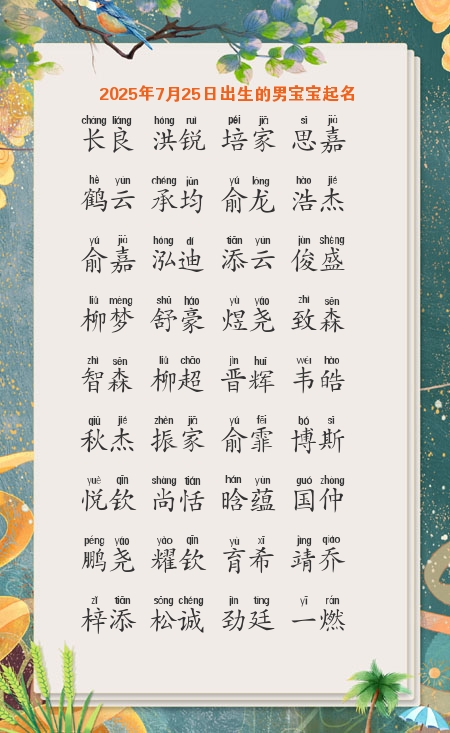 2025年7月25日出生的男宝宝起名
cháng liáng hóng ruì péi jiā sī jiā
长良 洪锐 培家 思嘉
hè yún chéng jūn yú lóng hào jié
鹤云 承均 俞龙 浩杰
yú jiā hóng dí tiān yún jùn shèng
俞嘉 泓迪 添云 俊盛
liǔ mèng shū háo yù yáo zhì sēn
柳梦 舒豪 煜尧 致森
zhì sēn liǔ chāo jìn huī wéi hào
智森 柳超 晋辉 韦皓
qiū jié zhèn jiā yú fēi bó sī
秋杰 振家 俞霏 博斯
yuè qīn shàng tián hán yùn guó zhòng
悦钦 尚恬 晗蕴 国仲
péng yáo yào qīn yù xī jìng qiáo
鹏尧 耀钦 育希 靖乔
zǐ tiān sōng chéng jìn tíng yī rán
梓添 松诚 劲廷 一燃